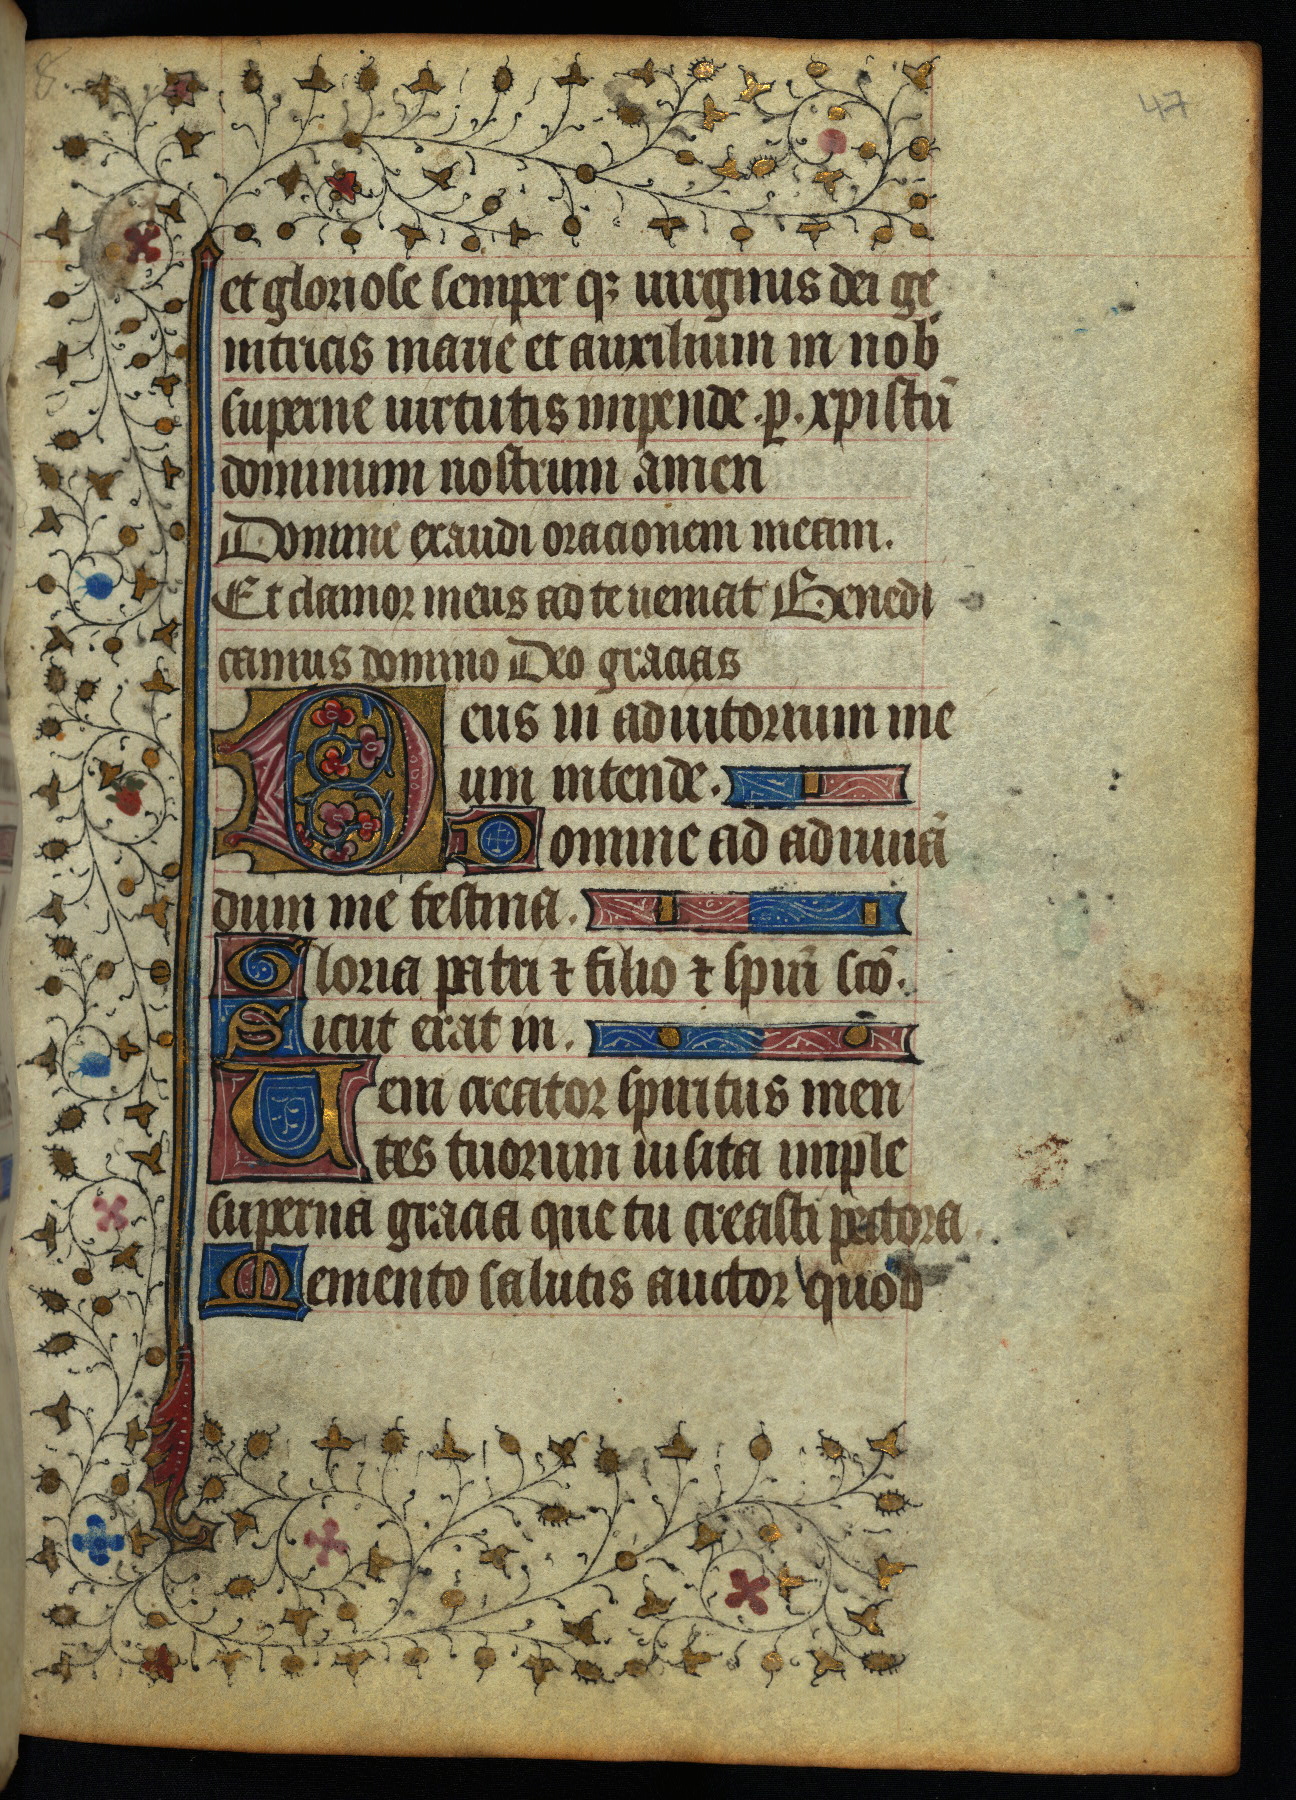 47
et gloriose semper q; uirginis dei ge
nitricis marie et auxilium in nob
superne uirtutis impende .p. xpistū
dominum nostrum amen
Domine exaudi oracionem meam.
Et clamor meus ad te ueniat Benedi
camus domino Deo gracias
Deus in aduitorium me
um intende.
Domine ad adiuuā
dum me festina.
Gloria patri ⁊ filio ⁊ spiri sc̄o.
Sicut erat in.
Ueni creator spiritus men
tes tuorum uisita imple
superna gracia que tu creasti pectora
Memento salutis auctor quod